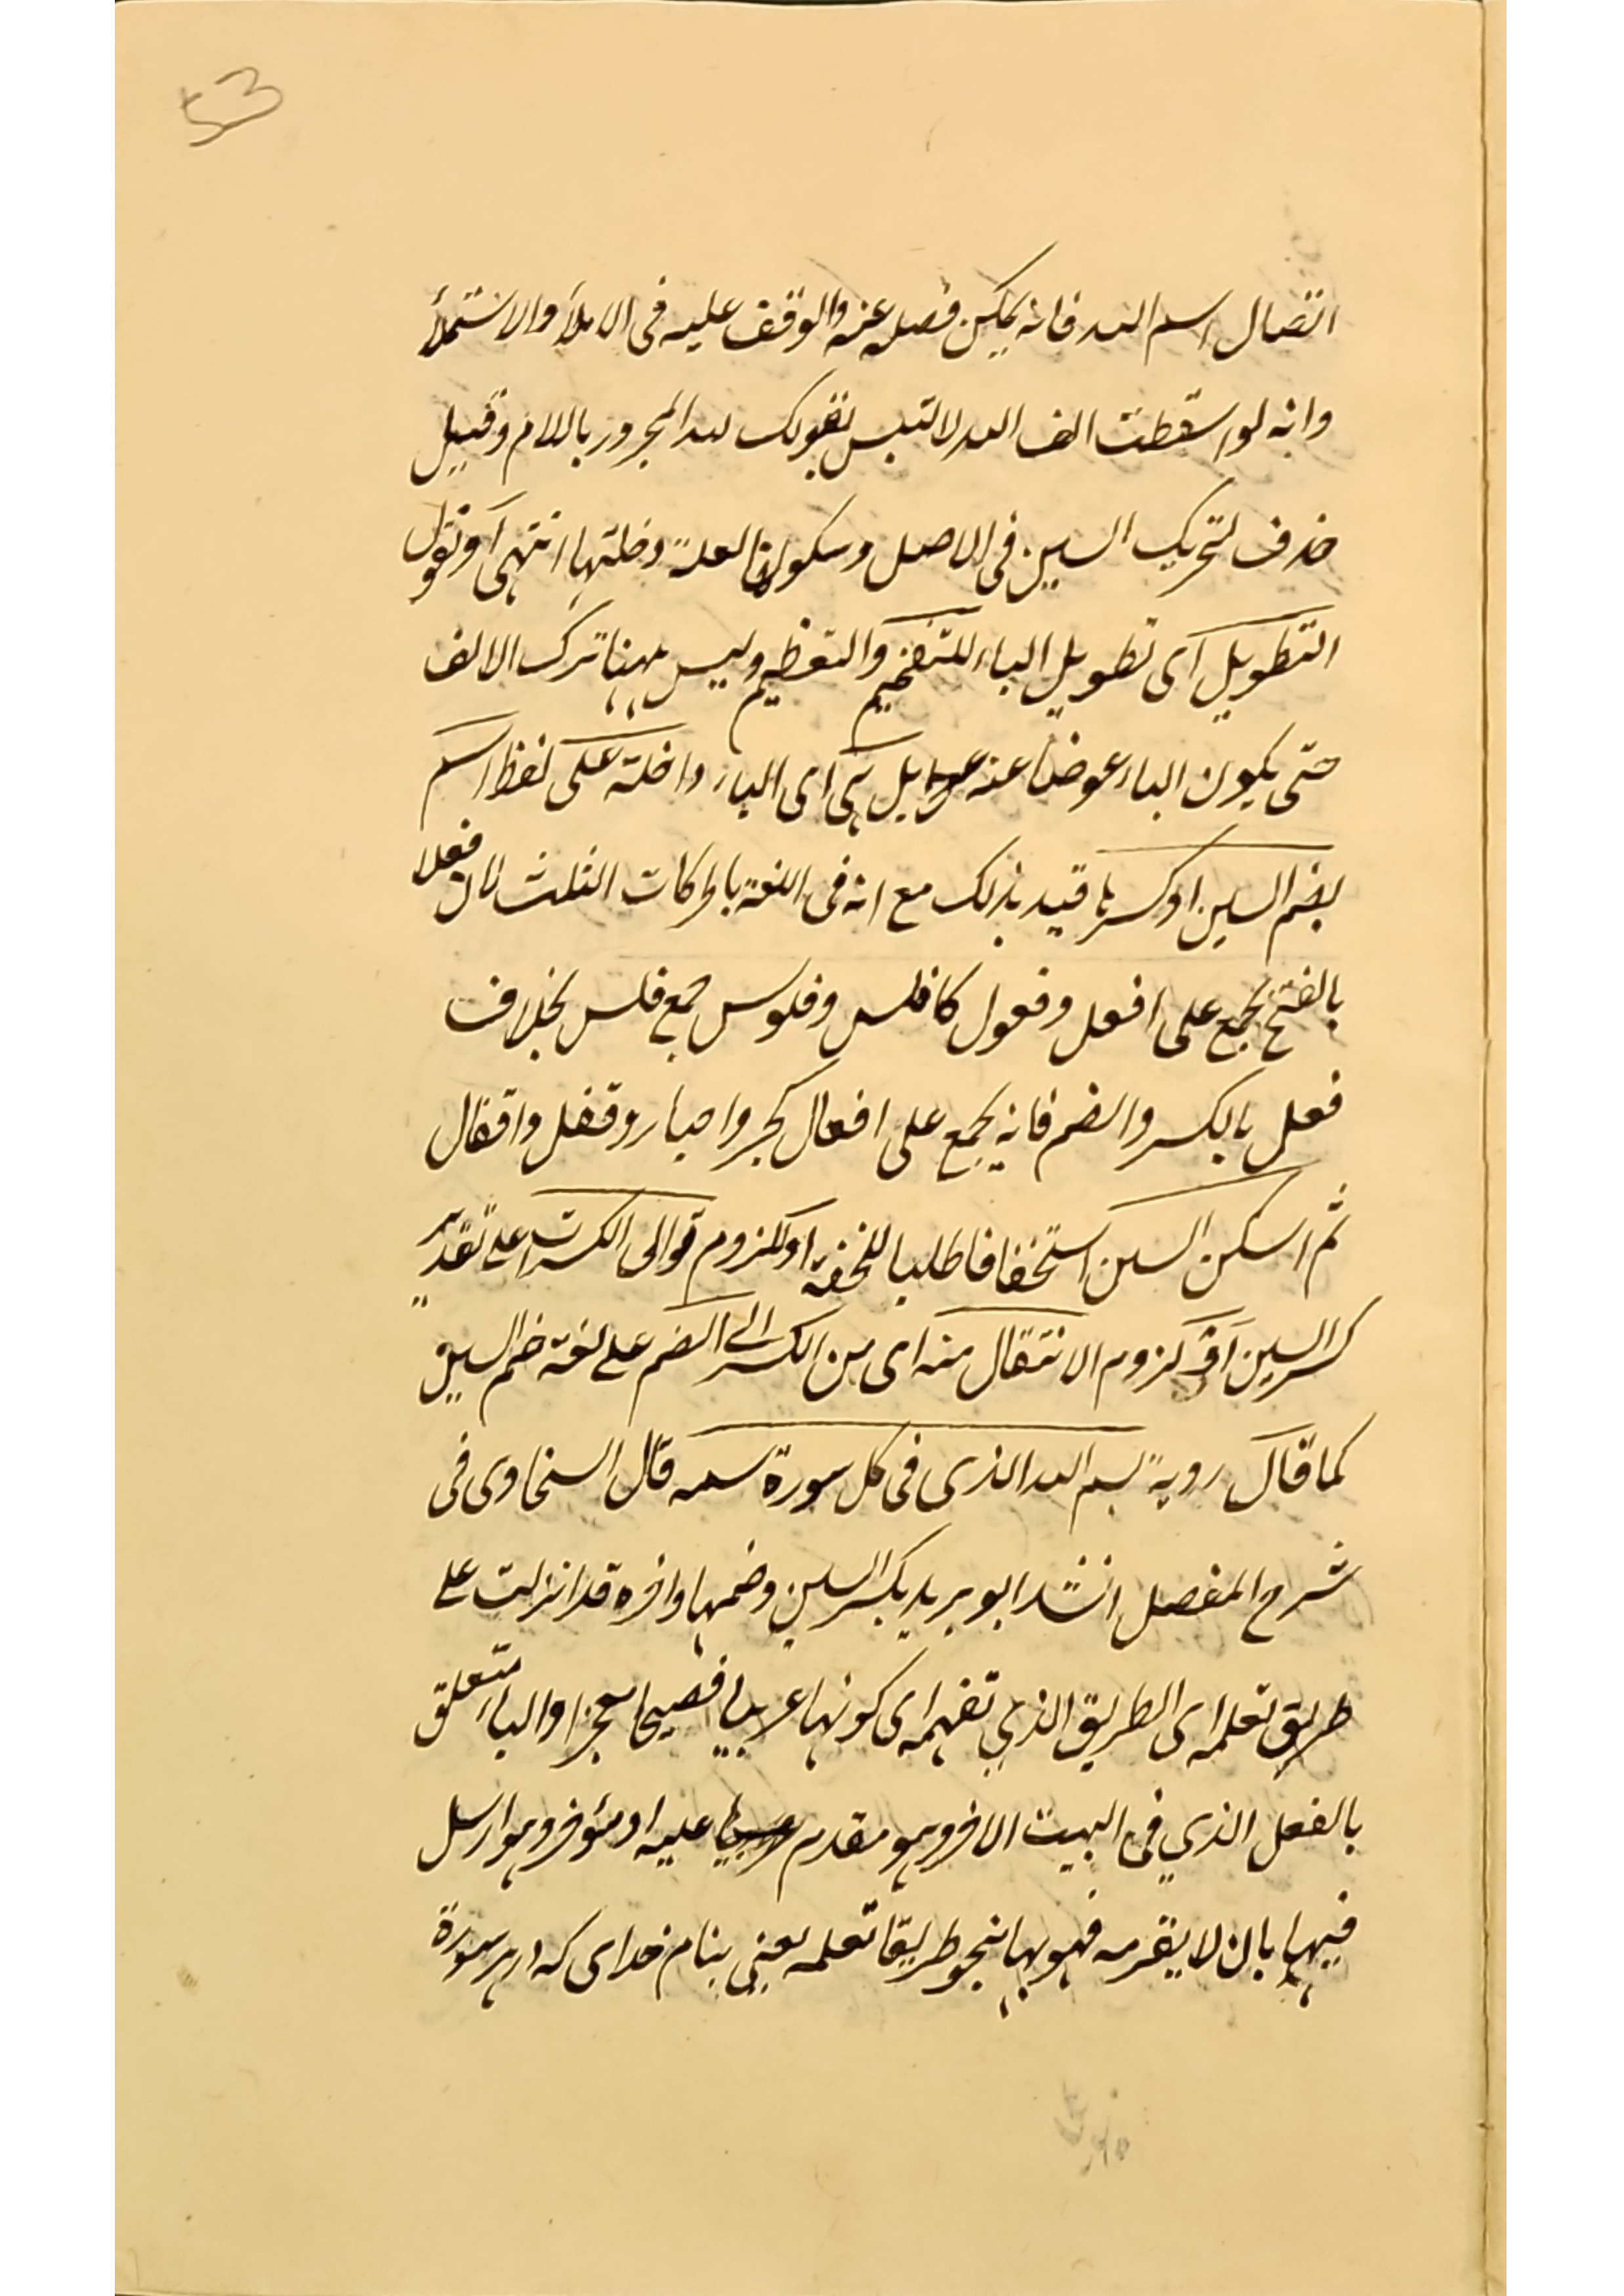 53
اتصال اسم الله فانه يمكن فصله عنه والوقف عليه فى الاملأ والاستملأ
وانه لو اسقطت الف الله لالتبس بقولك لله المجرور باللام وقيل
حذف لتحريك السين فى الاصل وسكونها لعلة دخلتها انتهى او نقول
التطويل اى تطويل الباء للتفخيم والتعظيم وليس ههنا ترك الالف
حتى يكون الباء عوضا عنه بل هى اى الباء داخلة على لفظ اسم
بضم السين او كسرها قيد بذلك مع انه فى اللغة بالحركات الثلث لان فعلا
بالفتح يجمع على افعل وفعول كافلس وفلوس جمع فلس بخلاف
فعل بالكسر والضم فانه يجمع على افعال كحبر واحبار وقفل واقفال
ثم اسكن السين استخفافا طلبا للخفة او للزوم توالى الكسرات على تقدير
كسر السين او لزوم الانتقال منه اى من الكسر الى الضم على لغة ضم السين
كما قال روبة بسم الله الذى فى كل سورة سمه قال السخاوى فى
شرح المفصل انشد ابو يزيد بكسر السين وضمها واخره قد انزلت على
طريق تعلمه اى الطريق الذي تفهمه اى كونها عربيا فصيحا معجزا والباء متعلق
بالفعل الذي فى البيت الاخر وهو مقدم عليه او مؤخر وهو ارسل
فيها بازلا يقرمه فهو بها ينحو طريقا تعلمه يعنى بنام خداى كه در هر سورة